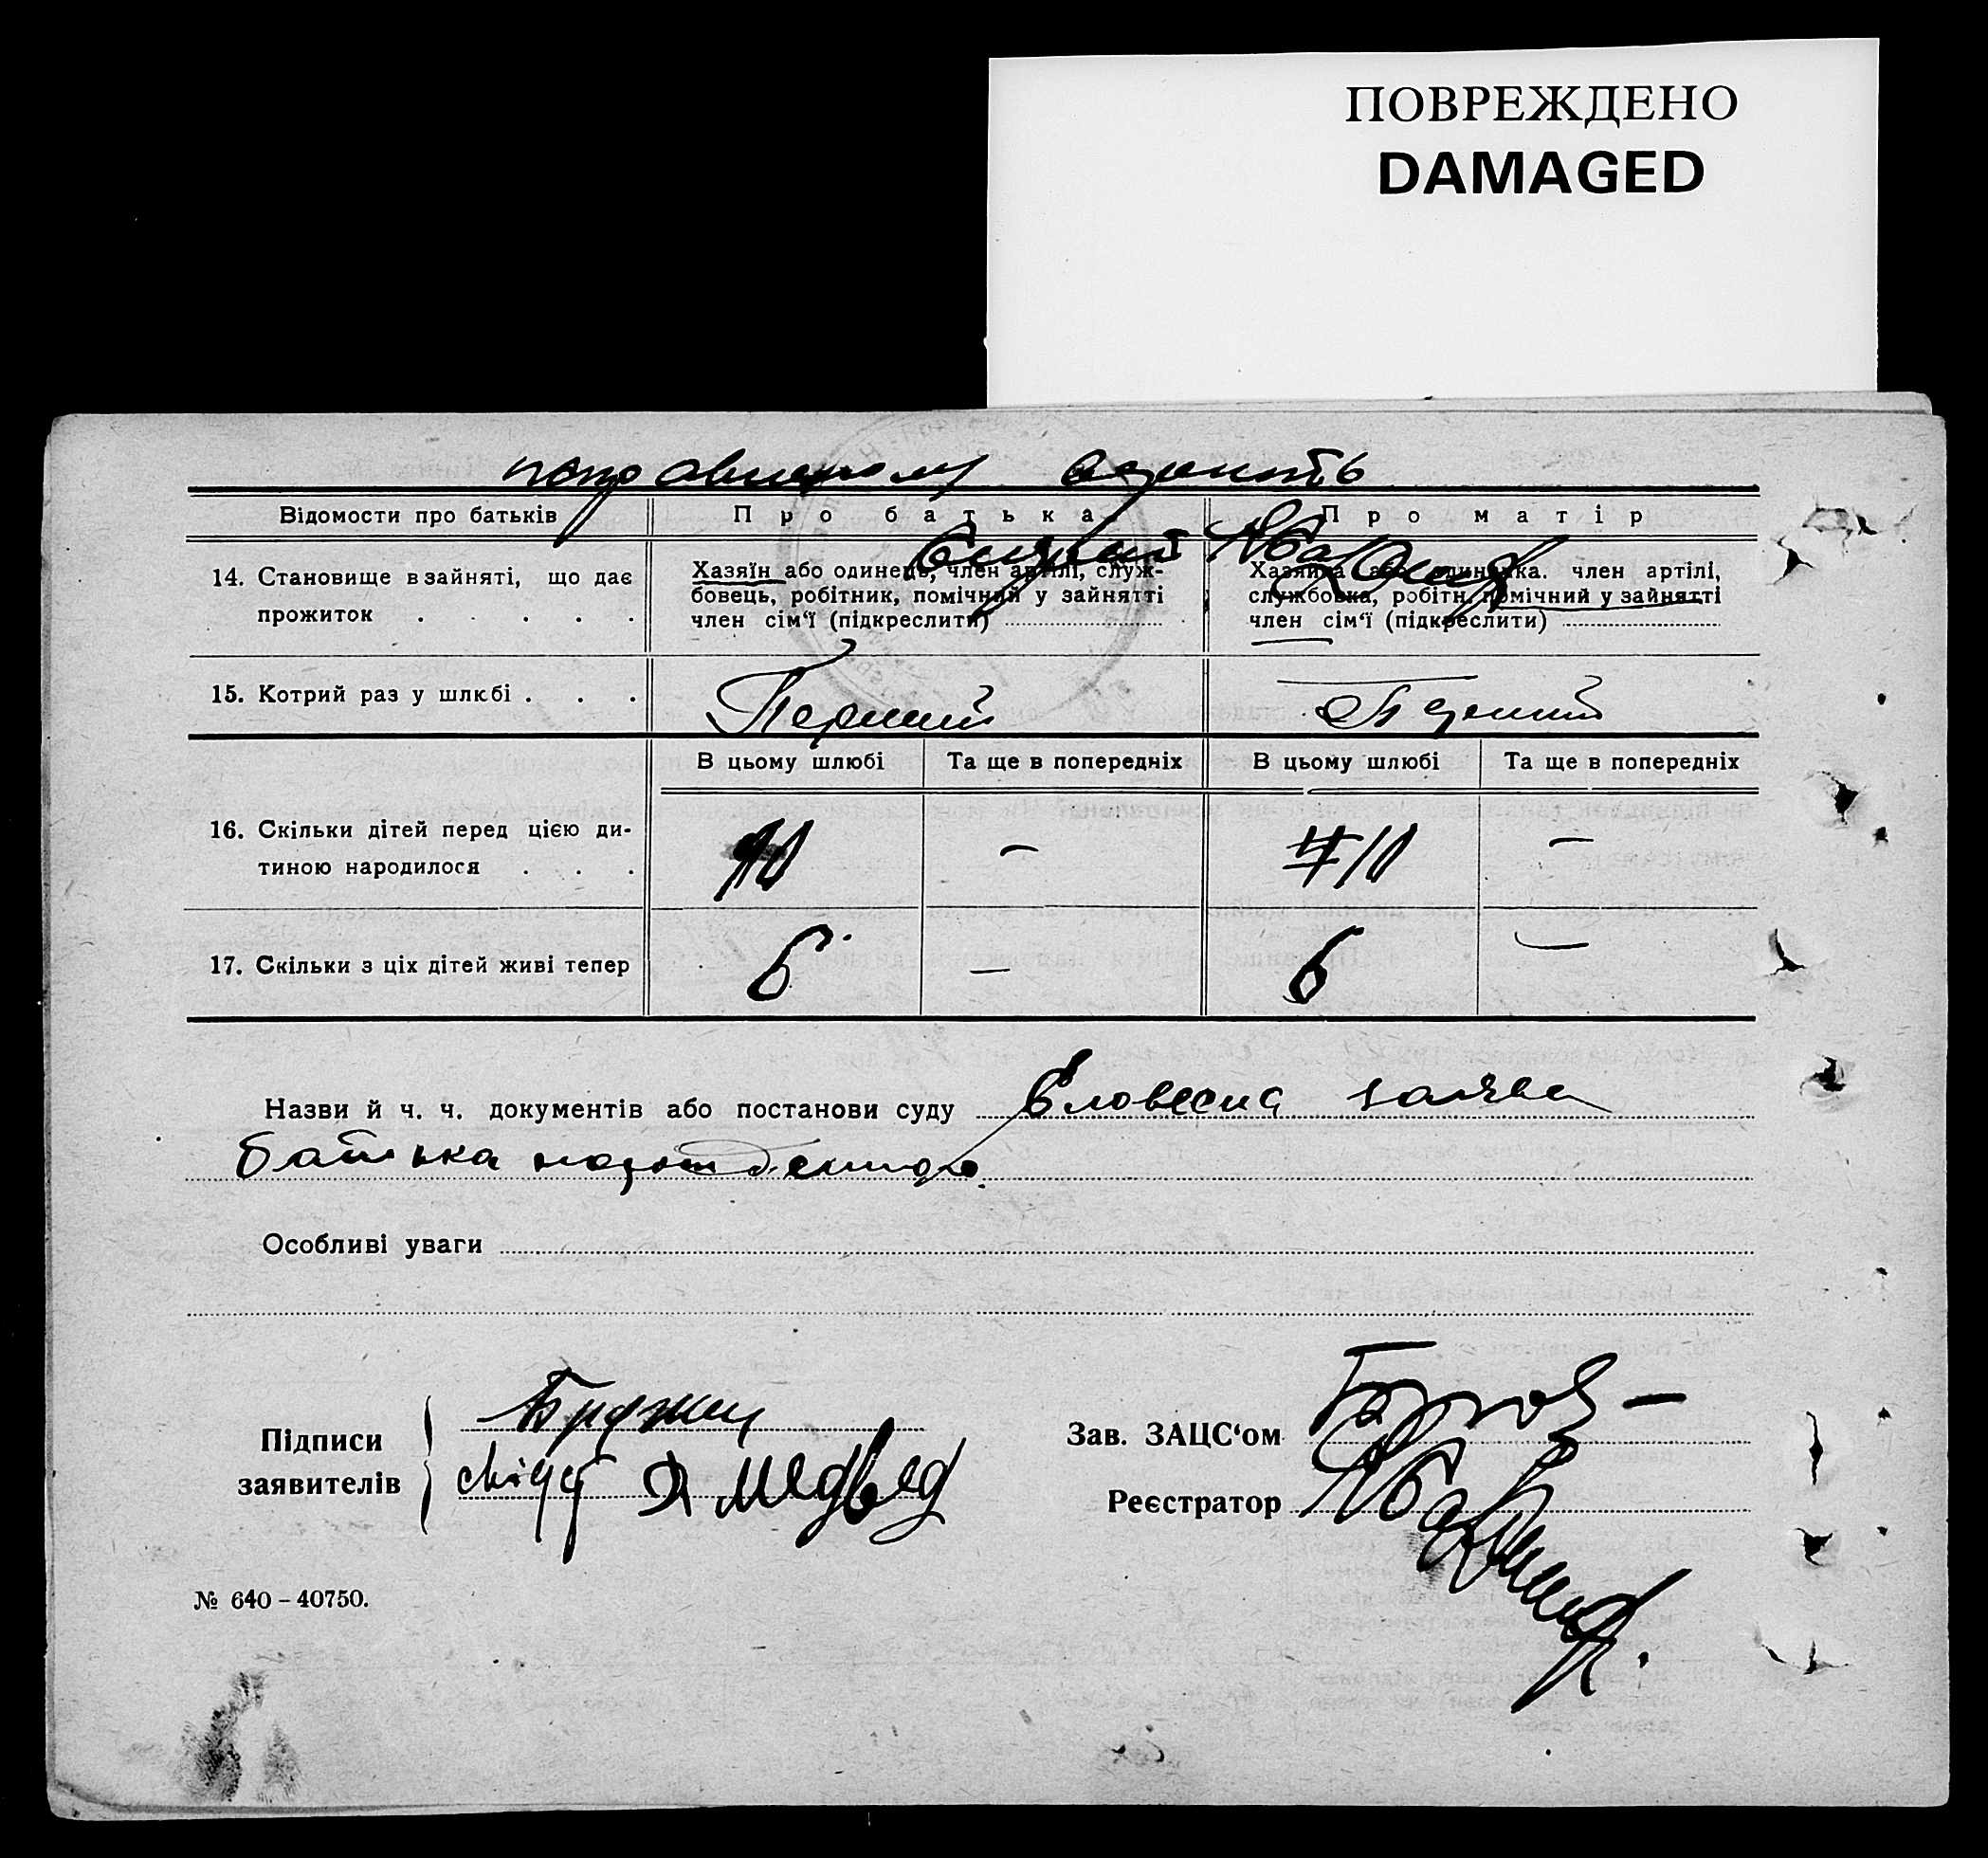 ПОВРЕЖДЕНО
DAMAGED
поправленому верить
Відомости про батьків
Про батька
Про матір
14. Становище в зайняті, що дає прожиток . . . . .
Хазяїн або одинець, член артілі, служ-
бовець, робітник, помічний у зайнятті
член сім'ї (підкреслити)
Хазяйка або одиначка. член артілі,
службовка, робітн. помічний у зайнятті
член сім'ї (підкреслити)
15. Котрий раз у шлюбі . . .
Перший
Перший
В цьому шлюбі
Та ще в попередніх
В цьому шлюбі
Та ще в попередніх
16. Скільки дітей перед цією ди-
тиною народилося . . .
10
—
10
—
17. Скільки з ціх дітей живі тепер
6
—
6
—
Назви й ч. ч. документів або постанови суду Словесна заява
батька
Особливі уваги
Підписи
заявителів
Медвед
Зав. ЗАЦС'ом
Реєстратор
№ 640 – 40750.